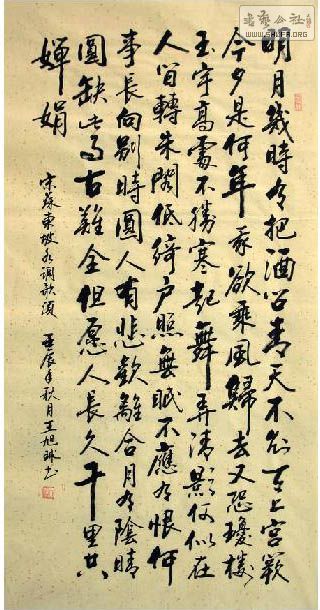 明月幾時有把酒问青天不知天上宫闕
今夕是何年我欲乘風歸去又恐瓊樓
玉宇高處不勝寒起舞弄清影何似在
人间轉朱閣低綺户照無眠不應有恨何
事長向别時圓人有悲歡離合月有陰晴
圓缺此事古難全但愿人長久千里共
嬋娟
宋蘇東坡水調歌頭 壬辰年秋月王旭书
書藝公社
WWW.SHUFA.ORG